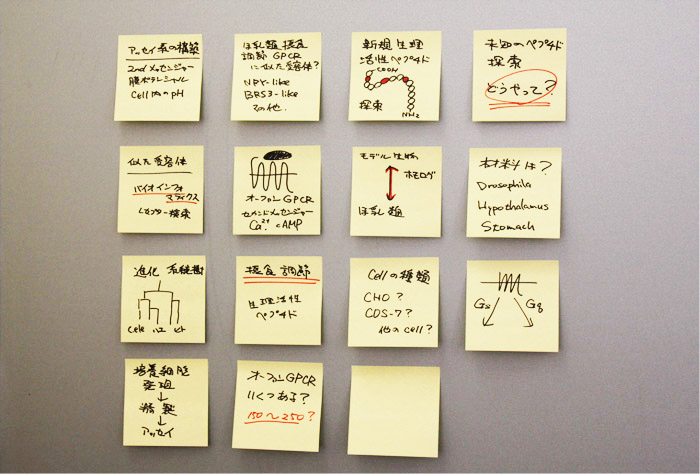 アッセイ系の構築
2ndメッセンジャー
膜ポテンシャル
Cell内のpH
ほ乳類 摂食
調節 GPCR
に似た受容体?
NPY-like
BRS3-like
その他.
新規生理
活性ペプチド
COOH
探索
NH2
未知のペプチド
探索
どうやって?
似た受容体
バイオインフォ
マティクス
レセプター探索
オーファンGPCR
セカンドメッセンジャー
Ca2+ cAMP
モデル生物
ホモログ
ほ乳類
材料は?
Drosophila
Hypothalamus
Stomach
進化 系統樹
Cele ハエ ヒト
摂食調節
生理活性
ペプチド
Cellの種類
CHO?
COS-7?
他のcell?
Gs Gq
培養細胞
発現
↓
精製
↓
アッセイ
オーファンGPCR
いくつある?
150~250?